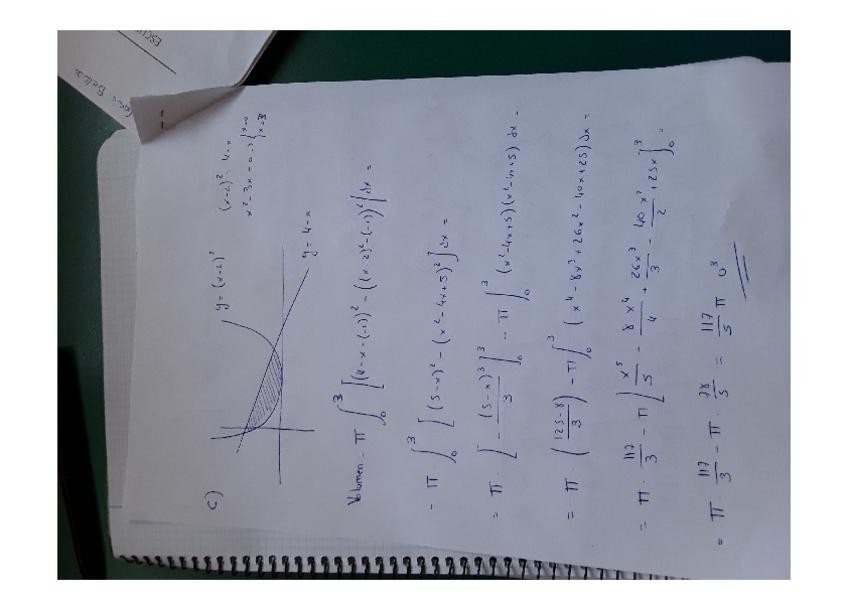 ESCU
C)
y = (x-2)²
(x-2)² = 4-x
x² - 3x = 0 → { x=0
x=3
y = 4-x
Volumen = π ∫₀³ [(4-x-(-1))² - ((x-2)²-(-1))²] dx =
= π · ∫₀³ [(5-x)² - (x²-4x+5)²] dx =
= π · [ - (5-x)³/3 ]₀³ - π ∫₀³ (x²-4x+5)(x²-4x+5) dx =
= π · ( (125-8)/3 ) - π ∫₀³ (x⁴ - 8x³ + 26x² - 40x + 25) dx =
= π · 117/3 - π [ x⁵/5 - 8x⁴/4 + 26x³/3 - 40x²/2 + 25x ]₀³ =
= π · 117/3 - π · 78/5 = 117/5 π u³